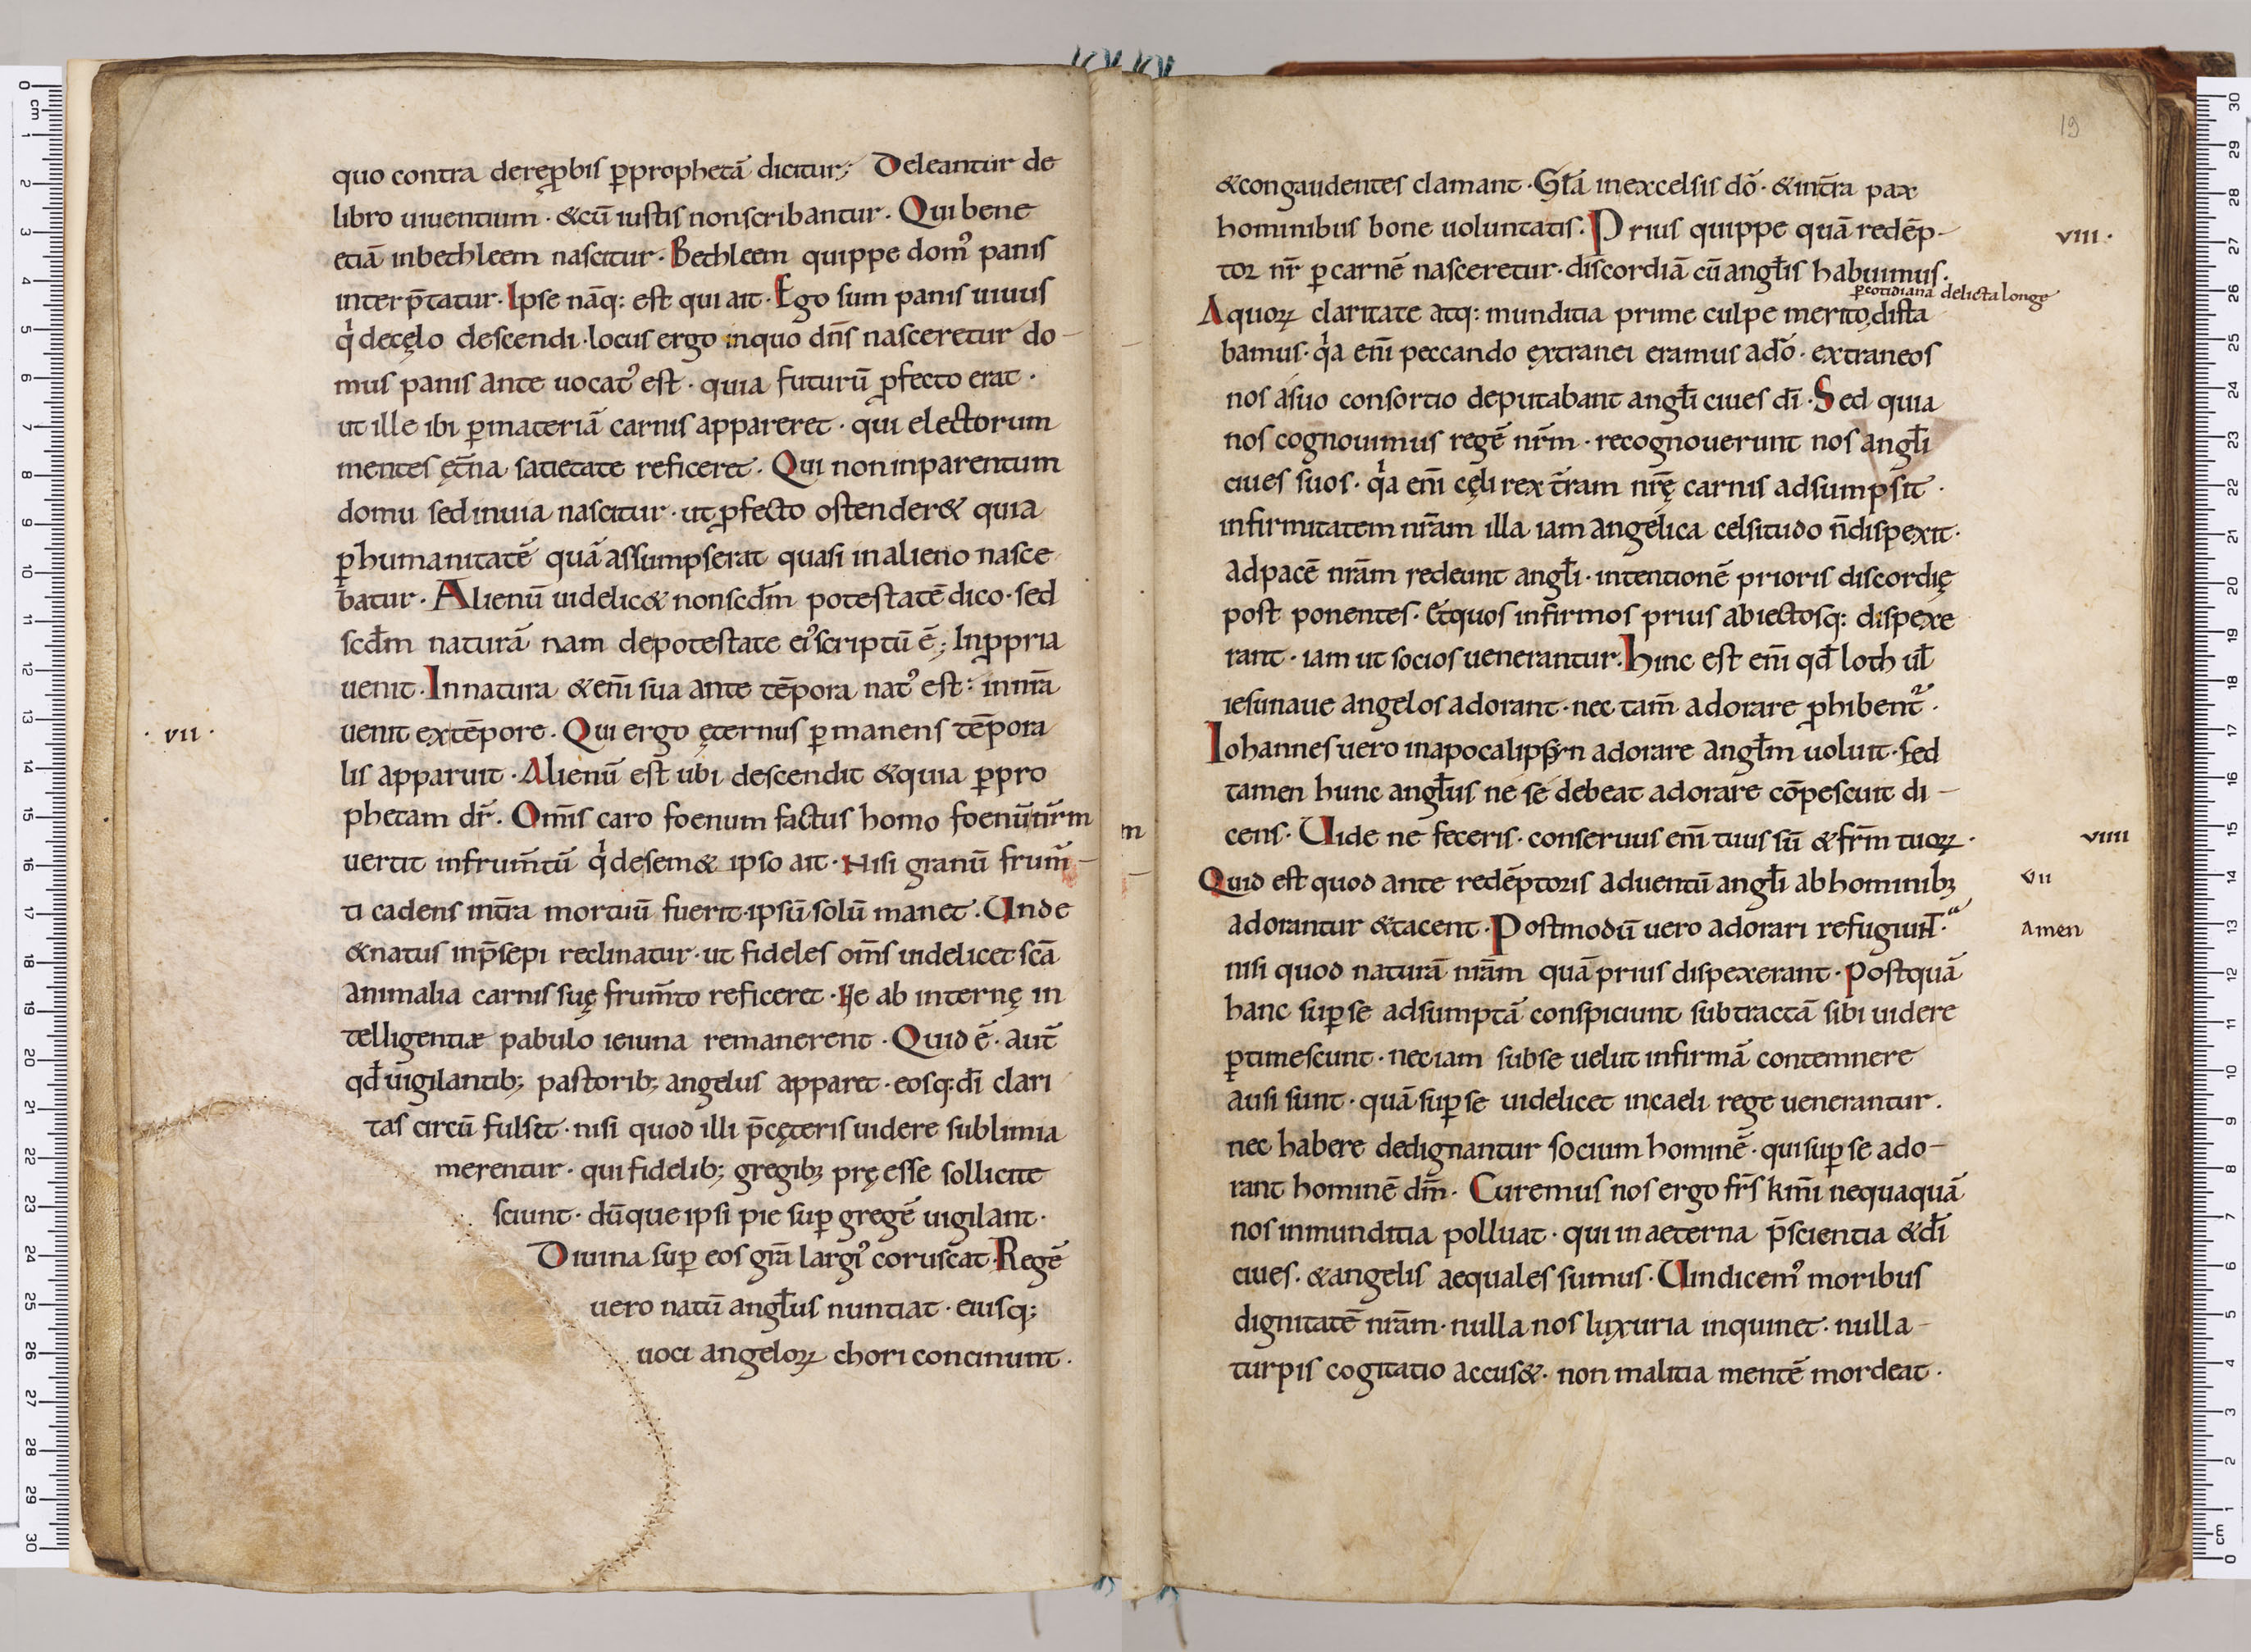 quo contra dereꝓbis ꝑprophetā dicitur; Deleantur de
libro uiuentium · &cū iustis nonscribantur. Qui bene
etiā inbethleem nascitur. Bethleem quippe domꝰ panis
interp̄tatur. Ipse nāq: est qui ait. Ego sum panis uiuus
qͥ decęlo descendi · locus ergo inquo dn̄s nasceretur do-
mus panis ante uocatꝰ est · quia futurū ꝓfecto erat ·
ut ille ibi ꝑmateriā carnis appareret · qui electorum
mentes ęt̄na satietate reficeret. Qui noninparentum
domu sedinuia nascitur · ut ꝓfecto ostender& quia
ꝑhumanitatē quā assumpserat quasi inalieno nasce
batur. Alienū uidelic& nonscd̄m potestatē dico · sed
scd̄m naturā nam depotestate eiꝰ scriptū ē; Inꝓpria
uenit. Innatura &eni̅ sua ante tēpora natꝰ est: innr̄a
· vii · uenit extēpore. Qui ergo ęternus ꝑmanens tēpora
lis apparuit. Alienū est ubi descendit &quia ꝑpro
phetam dr̄. Om̄is caro foenum factus homo foenū nr̄m
uertit infrum̄tū qͥ desem& ipso ait. Nisi granū frum̄-
ti cadens int̄ra mortuū fuerit · ipsū solū manet. Unde
&natus inp̄sepi reclinatur · ut fideles om̄s uidelicet scā
animalia carnis suę frum̄to reficeret. Ne ab internę in
telligentiæ pabulo ieiuna remanerent. Quid ē · aut̄
qd̄ uigilantib; pastorib; angelus apparet · eosq: dī clari
tas circū fulset · nisi quod illi p̄cęteris uidere sublimia
merentur · qui fidelib; gregib; pręesse sollicite
sciunt · dūque ipsi pie suꝑ gregē uigilant ·
Diuina suꝑ eos gr̄a largiꝰ coruscat. Regē
uero natū angl̄us nuntiat · eiusq;
uoci angeloꝝ chori concinunt.
19
&congaudentes clamant. Gl̄a inexcelsis dō · &int̄ra pax
hominibus bone uoluntatis. Prius quippe quā redēp- viii ·
tor nr̄ ꝑcarnē nasceretur · discordiā cū angl̄is habuimus.
ꝑcotidiana delicta longe
Aquoꝝ claritate atq: munditia prime culpe merito, dista
bamus · qͥa eni̅ peccando ęxtranei eramus adō · extraneos
nos asuo consortio deputabant angl̄i ciues dī. Sed quia
nos cognouimus regē nr̄m · recognouerunt nos angl̄i
ciues suos · qͥa eni̅ cęli rex t̄ram nr̄ę carnis adsumpsit ·
infirmitatem nr̄am illa iam angelica celsitudo n̄ dispexit ·
adpacē nr̄am redeunt angl̄i · intentionē prioris discordię
post ponentes. Etquos infirmos prius abiectosq: dispexe
rant · iam ut socios uenerantur. Hinc est eni̅ qd̄ loth ul̄
iesunaue angelos adorant · nec tam̄ adorare ꝓhibent᷑ ·
Iohannes uero inapocalipsyn adorare angl̄m uoluit · sed
tamen hunc angl̄us ne se debeat adorare cōpescuit di-
cens. Uide ne feceris · conseruus eni̅ tuus sū &fr̄m tuoꝝ · viiii
Quid est quod ante redēptoris aduentū angl̄i ab hominib; vii
adorantur &tacent. Postmodū uero adorari refugiunt · amen
nisi quod naturā nr̄am quā prius dispexerant. Postquā
hanc suꝑse adsumptā conspiciunt subtractā sibi uidere
ꝑtimescunt · neciam subse uelut infirmā contemnere
ausi sunt · quā suꝑse uidelicet incaeli rege uenerantur.
nec habere dedignantur socium hominē · qui suꝑse ado-
rant hominē dm̄. Curemus nos ergo fr̄s km̄i nequaquā
nos inmunditia polluat · qui in aeterna p̄scientia &dī
ciues · &angelis aequales sumus. Uindicemꝰ moribus
dignitatē nr̄am · nulla nos luxuria inquinet · nulla
turpis cogitatio accus& · non malitia mentē mordeat ·